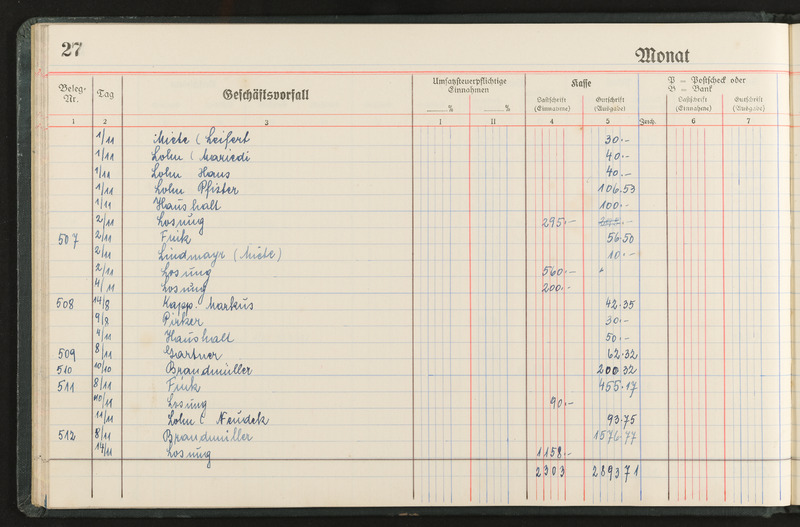 27
Monat
Beleg-Nr. Tag Geschäftsvorfall Umsatzsteuerpflichtige Einnahmen Kasse P = Postscheck oder B = Bank
% % Lastschrift (Einnahme) Gutschrift (Ausgabe) Lastschrift (Einnahme) Gutschrift (Ausgabe)
1 2 3 I II 4 5 6 7
1/11 Miete (Leifert 30.-
1/11 Lohn (Mariedi 40.-
1/11 Lohn Hans 40.-
1/11 Lohn Pfister 106.53
1/11 Haushalt 100.-
2/11 Losung 295.-
507 2/11 Fink 56.50
2/11 Lindmayr (Miete) 10.-
2/11 Losung 560.-
4/11 Losung 200.-
508 14/8 Kapp. Markus 42.35
9/8 Pirker 30.-
4/11 Haushalt 50.-
509 8/11 Gartner 62.32
510 10/10 Brandmüller 200.32
511 8/11 Fink 455.17
10/11 Losung 90.-
11/11 Lohn (Neudek 93.75
512 8/11 Brandmüller 1576.77
14/11 Losung 1158.-
2303 289371